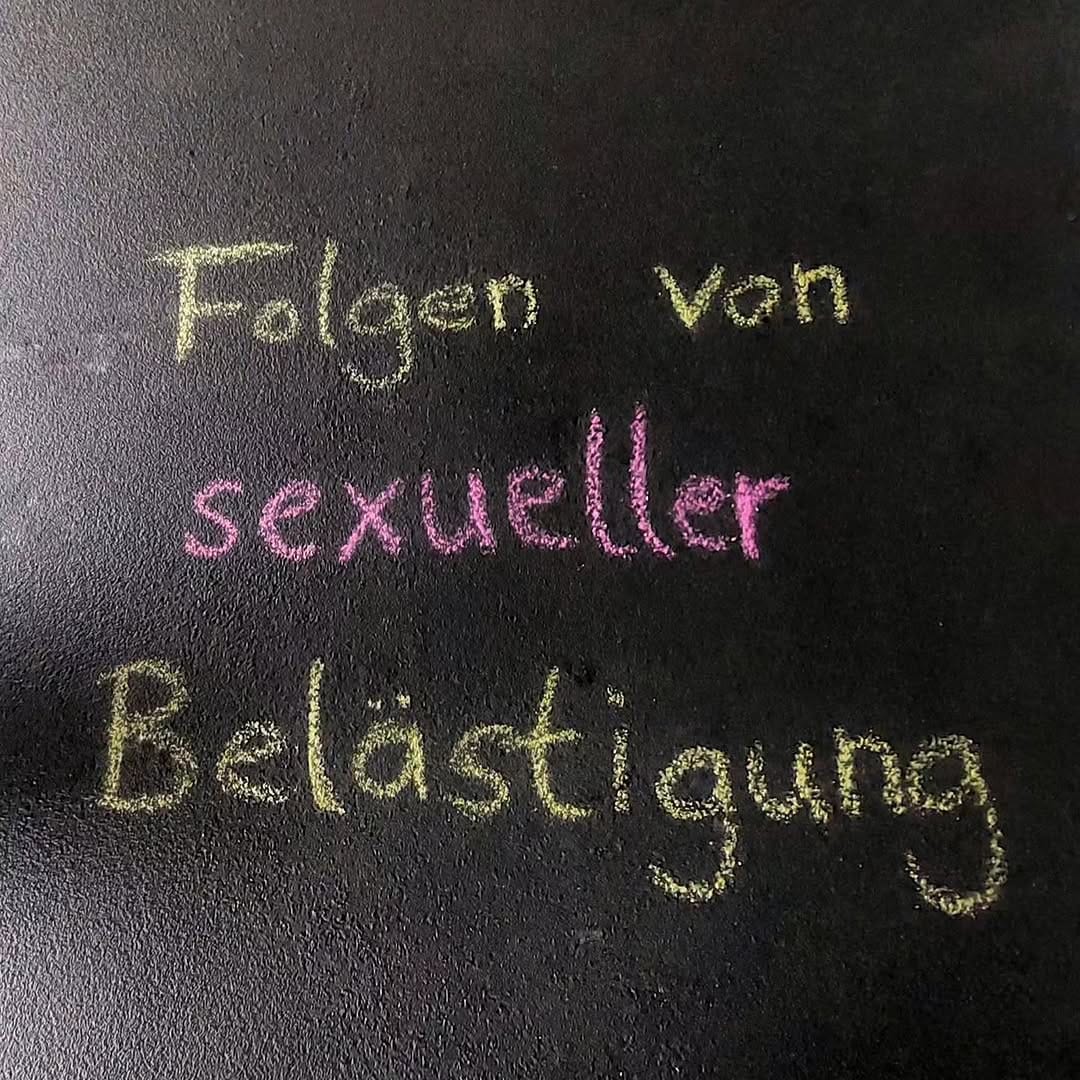 Folgen von
sexueller
Belästigung